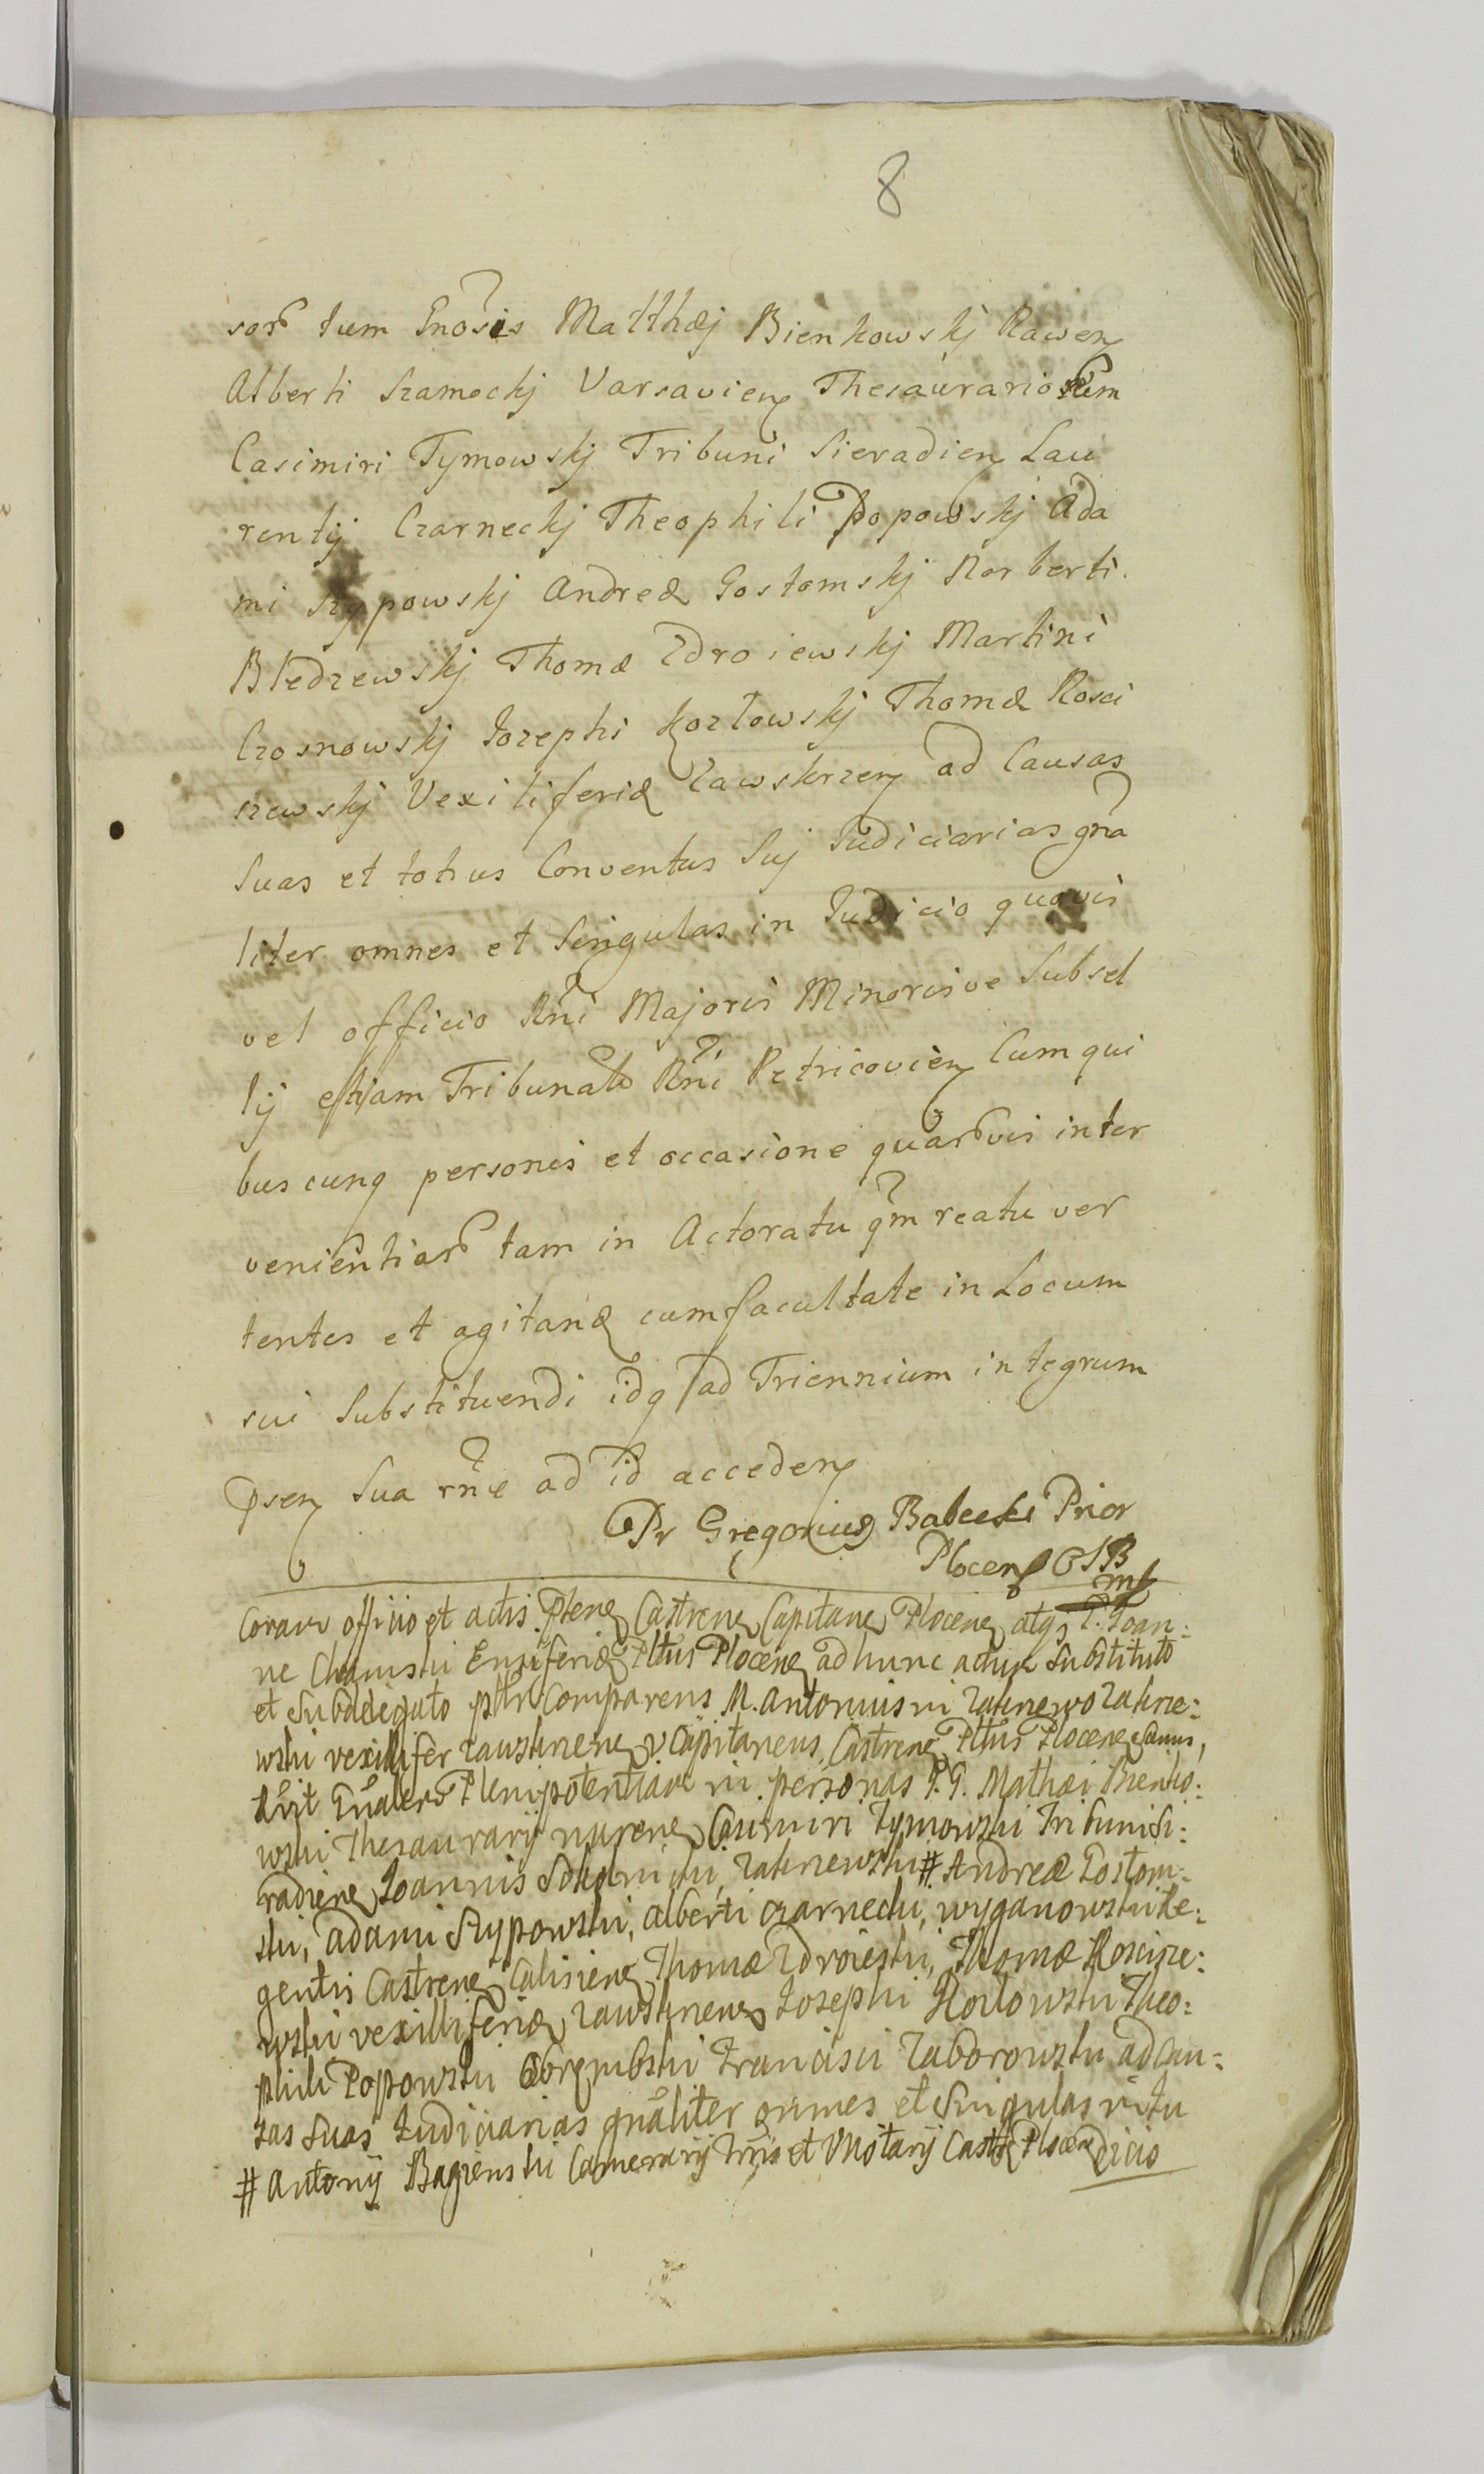 8
sor tum Gnosis Matthæj Bienkowskj Rawen
Alberti Szamockj Varsavien Thesaurariorum
Casimiri Tymowskj Tribuni Sieradien Lau
rentij Czarneckj Theophili Popowskj Ada
mi Szypowskj Andreæ Gostomskj Norberti
Błędzewskj Thomæ Zdroiewskj Martini
Czosnowskj Jozephi Kozłowskj Thomæ Rosci
szewskj Vexiliferid Zawskrzen ad Causas
Suas et totius Conventus Suj Judiciarias gna
liter omnes et Singulas in Judicio quovis
vel officio Rni Majoris Minorisve Subsel
lij etiam Tribunali Rni Petricovien Cum qui
buscunq personis et occasione quarvis inter
venientiar tam in Actoratu qm reatu ver
tentes et agitand cum facultate in Locum
sui Substituendi idq ad Triennium integrum
Psen Sua rne ad id acceden
Pr Gregorius Babecki Prior
Plocen OSB
mp
Coram officio et actis Pten Castren Capitane Plocen atq P. Joan:
ne Chamski Ensiferid Pltus Plocen ad hunc actum Substituto
et Subdelegato pltr Comparens M. Antonius in Zakrzewo Zakrze:
wski vexillifer Zawskrzene V Capitaneus Castren Pltus Plocene
Gnalem Plenipotentiam in personas P. G. Mathæi Bienko:
wski Thesaurarij Casimiri Tymowski Tribuni Si:
radiene Joannis Sokolnicki, Zakrzewski # Andreæ Gostom:
ski, Adami Szypowski, Alberti Czarnecki, Wyganowski Re:
gentis Castren Calisiene Thomæ Zdroieski, Thomæ Roscisze:
wski vexilliferid Zawskrzene Josephi Kozłowski Theo:
phili Popowski Obrembski Francisci Zaborowski ad Cau:
sas Suas Judiciarias gnaliter omnes et Singulas in Ju
# Antonij Bagienski Camerarij Trris et VNotarij Castr Plocen dicio